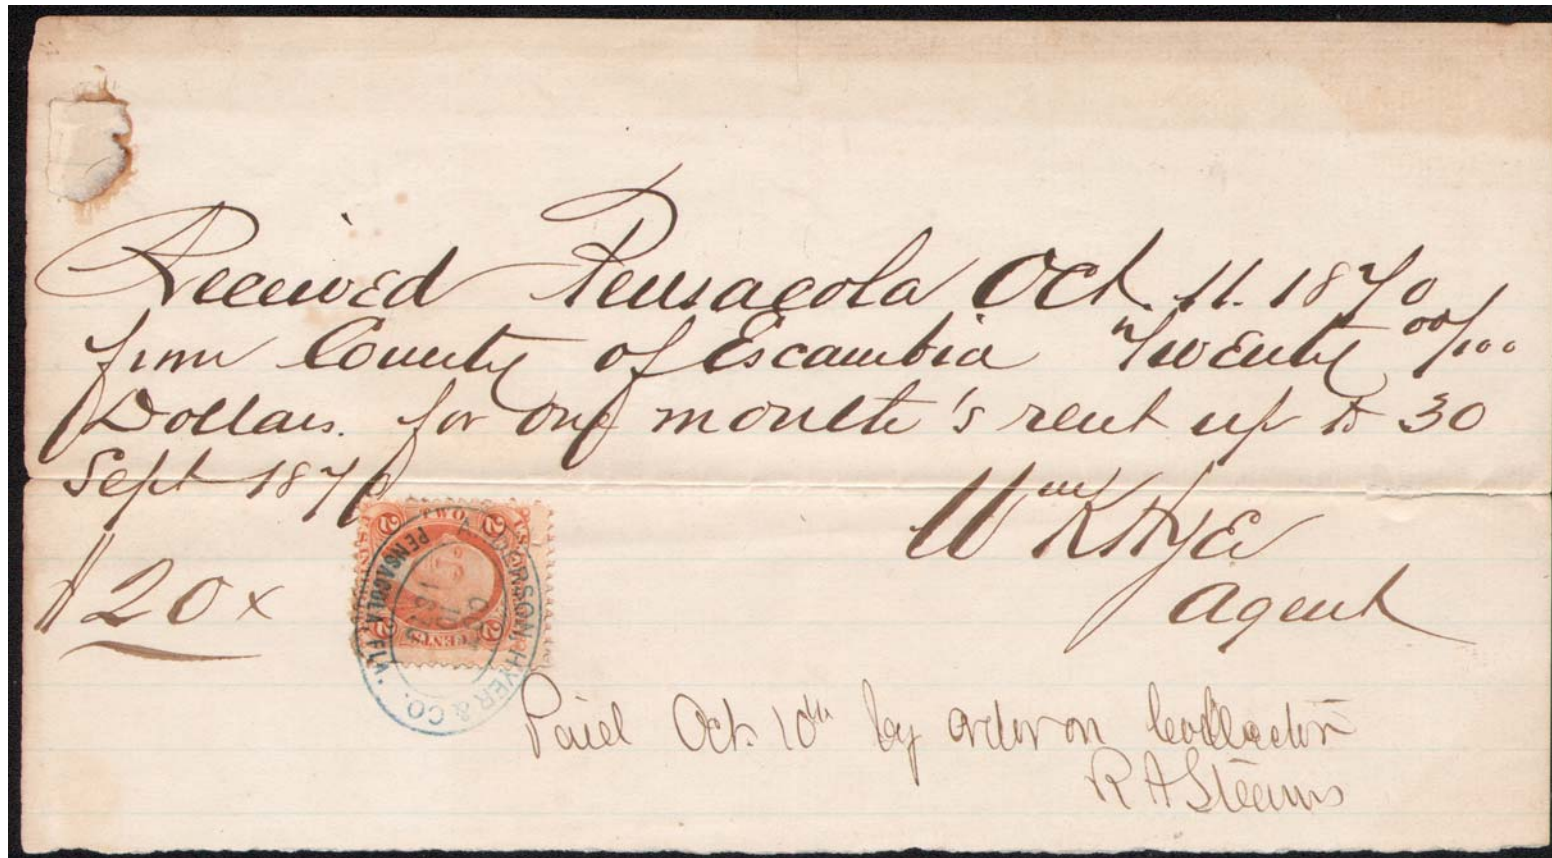 Received Pensacola Oct. 11. 1870
from County of Escambia Twenty 00/100
Dollars. for one month's rent up to 30
Sept 1870
Wm K Hyer
Agent
$20 x
TWO
2 2
2 CENTS 2
ANDERSON, HYER & CO.
OCT
PENSACOLA, FLA.
Paid Oct. 10th by order on Collector
R A Stearns